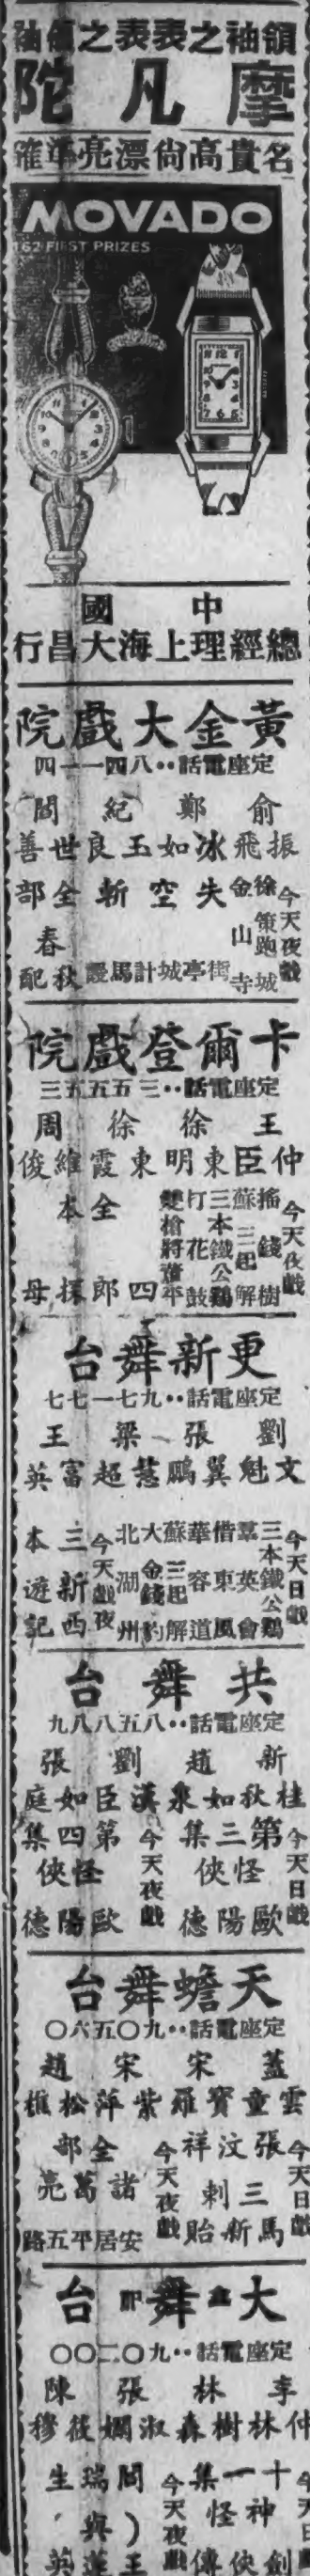 領袖之表表之領袖
摩凡陀
名貴高尙漂亮準確
MOVADO
162 FIRST PRIZES
中國
總經理上海大昌行
黃金大戲院
定座電話‥八四一一四
俞振飛
鄭冰如
紀玉良
閻世善
今天夜戲
徐策跑城
金山寺
失空斬
街亭城計馬謖
全部
春秋配
卡爾登戲院
定座電話‥三五五五三
王仲臣
徐東明
徐東霞
周維俊
今天夜戲
搖錢樹
蘇三起解
三本鐵公鷄
打花鼓
雙槍將董平
全本
四郎探母
更新舞台
定座電話‥九七一七七
劉文魁
張翼鵬
梁慧超
王富英
今天日戲
三本鐵公鷄
羣英會
借東風
華容道
蘇三起解
大金錢豹
北湖州
今天夜戲
三本新西遊記
共舞台
定座電話‥八五八八九
新桂秋
趙如泉
劉漢臣
張如庭
今天日戲
第三集
怪俠歐陽德
今天夜戲
第四集
怪俠歐陽德
天蟾舞台
定座電話‥九〇五六〇
蓋雲童
宋寶羅
宋紫萍
趙松樵
今天日戲
張汶祥
三剌
馬新貽
今天夜戲
全部
諸葛亮
安居平五路
大舞台
定座電話‥九〇二〇〇
李仲林
林樹森
張淑嫻
陳筱穆
今天日
十一集
神怪劍俠傳
今天夜戲
閻瑞生
王蓮英